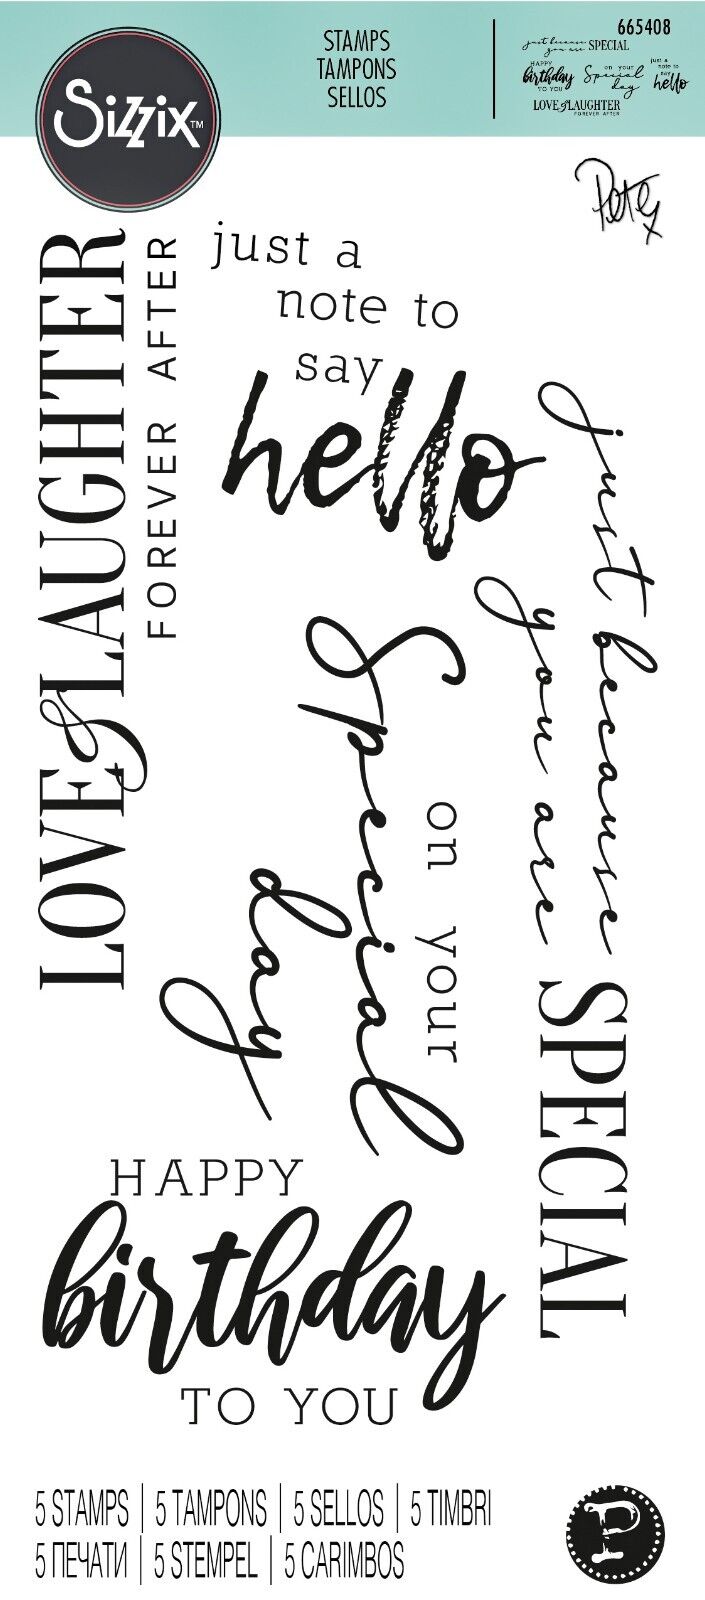 Sizzix™
STAMPS
TAMPONS
SELLOS
665408
just because
you are SPECIAL
HAPPY
birthday
TO YOU
on your
Special
day
just a
note to
say
hello
LOVE & LAUGHTER
FOREVER AFTER
Petex
LOVE & LAUGHTER
FOREVER AFTER
just a
note to
say
hello
just because
you are
SPECIAL
on your
Special
day
HAPPY
birthday
TO YOU
5 STAMPS | 5 TAMPONS | 5 SELLOS | 5 TIMBRI
5 ПЕЧАТИ | 5 STEMPEL | 5 CARIMBOS
P